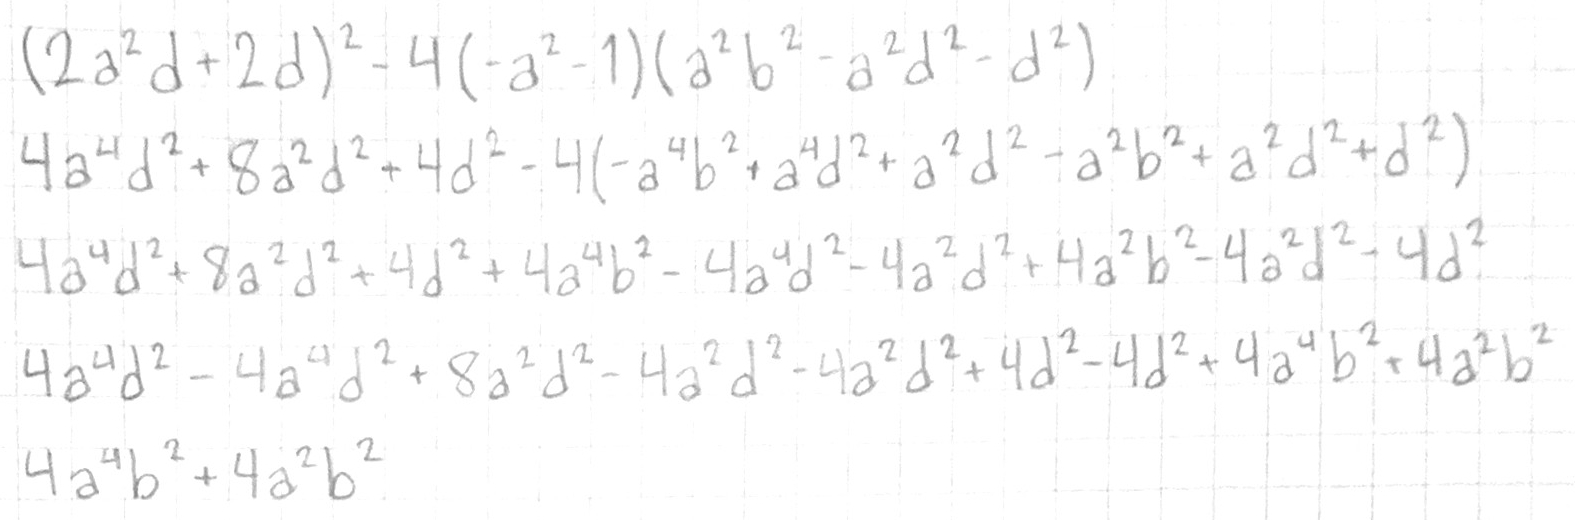 (2a²d+2d)²-4(-a²-1)(a²b²-a²d²-d²)
4a⁴d²+8a²d²+4d²-4(-a⁴b²+a⁴d²+a²d²-a²b²+a²d²+d²)
4a⁴d²+8a²d²+4d²+4a⁴b²-4a⁴d²-4a²d²+4a²b²-4a²d²-4d²
4a⁴d²-4a⁴d²+8a²d²-4a²d²-4a²d²+4d²-4d²+4a⁴b²+4a²b²
4a⁴b²+4a²b²